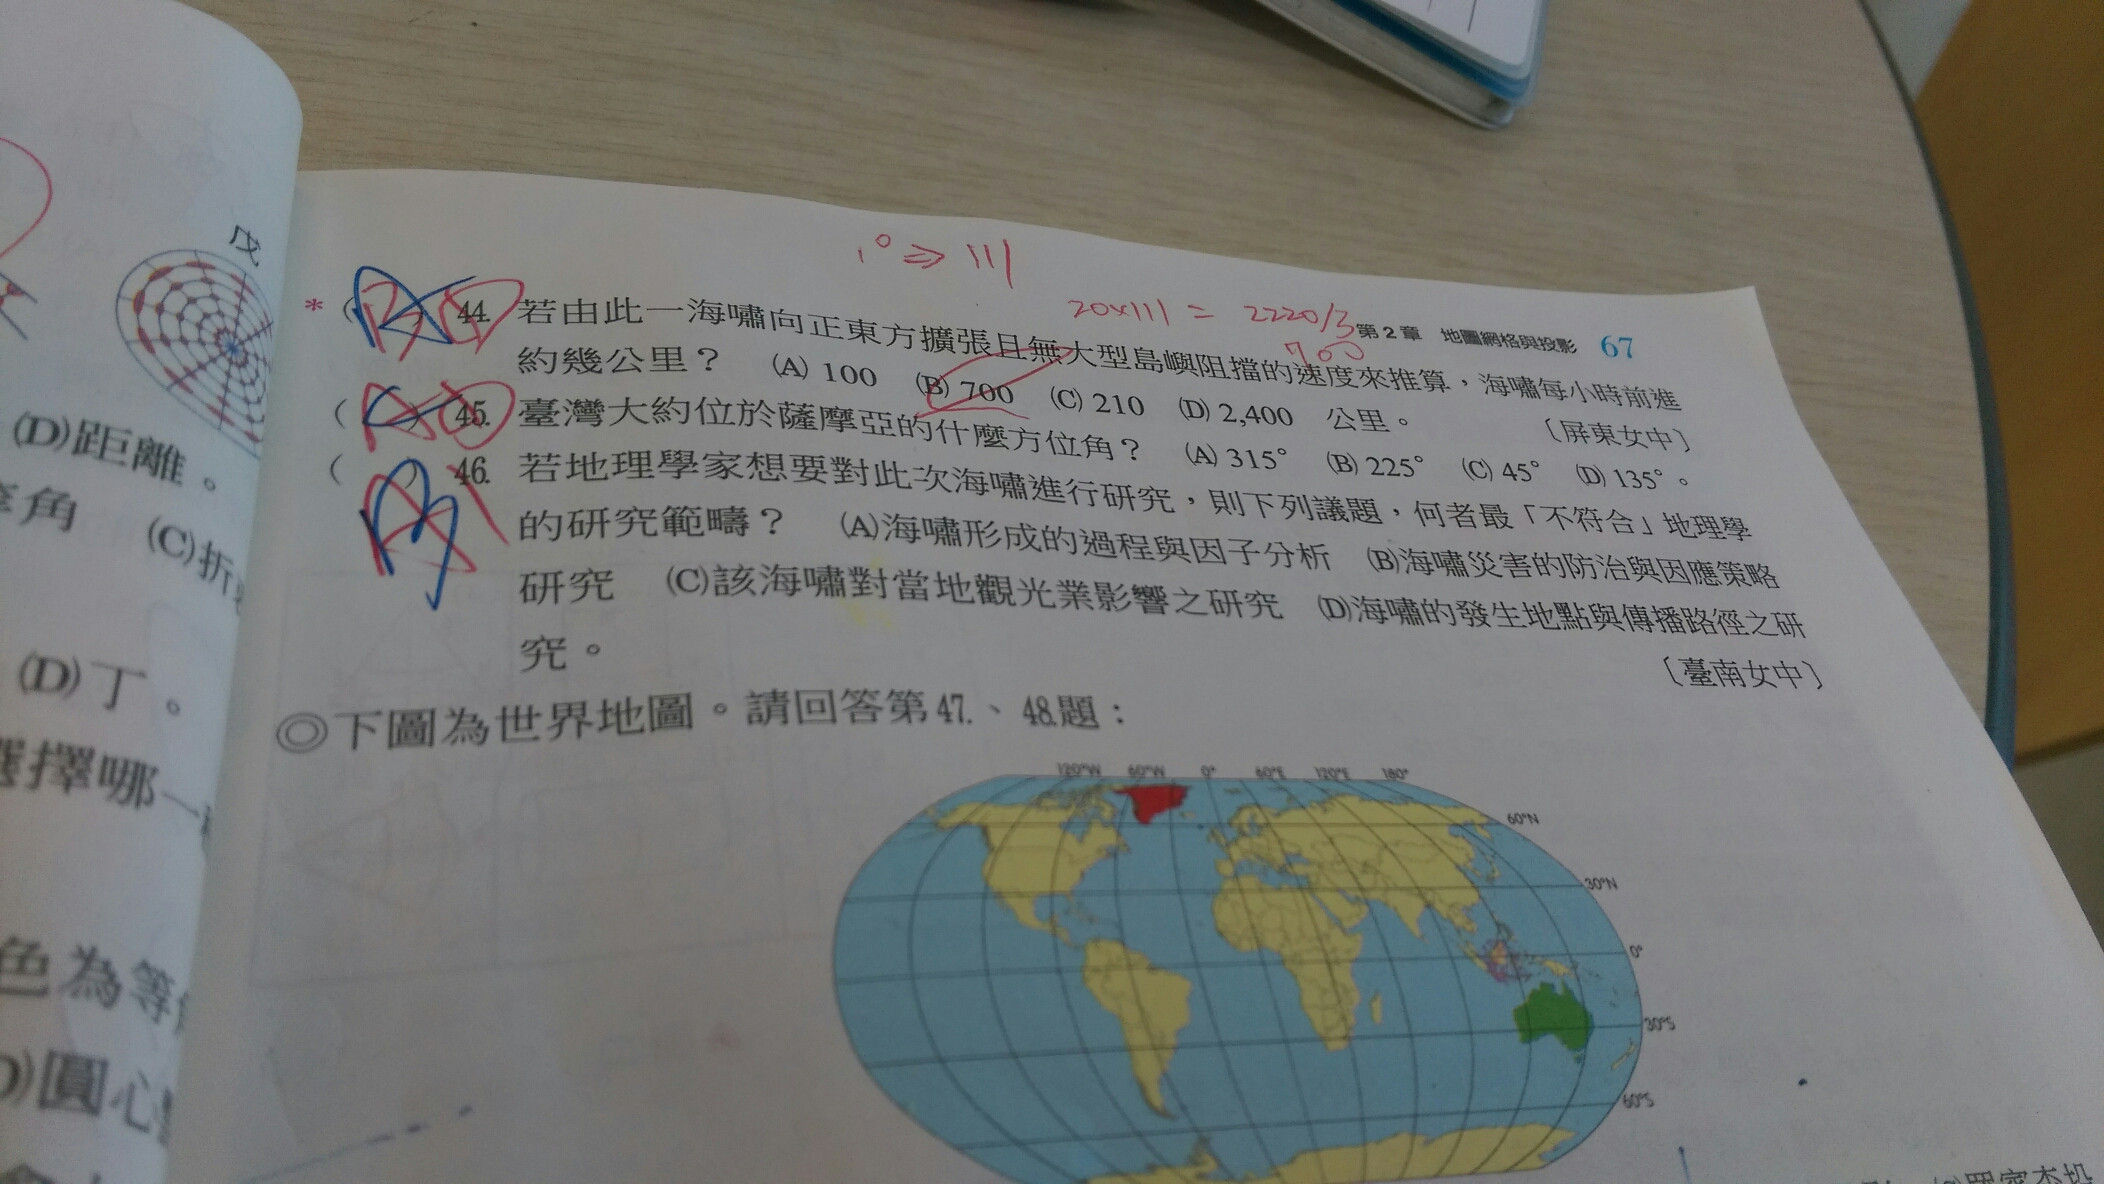 戊
(D)距離。
角 (C)折
(D)丁。
選擇哪一
色為等
D)圓心
1° ⇒ 111
20×111 = 2220/3
700
第2章 地圖網格與投影 67
* ( ) 44. 若由此一海嘯向正東方擴張且無大型島嶼阻擋的速度來推算,海嘯每小時前進
約幾公里? (A) 100 (B) 700 (C) 210 (D) 2,400 公里。 〔屏東女中〕
( ) 45. 臺灣大約位於薩摩亞的什麼方位角? (A) 315° (B) 225° (C) 45° (D) 135°。
( ) 46. 若地理學家想要對此次海嘯進行研究,則下列議題,何者最「不符合」地理學
的研究範疇? (A)海嘯形成的過程與因子分析 (B)海嘯災害的防治與因應策略
研究 (C)該海嘯對當地觀光業影響之研究 (D)海嘯的發生地點與傳播路徑之研
究。 〔臺南女中〕
◎下圖為世界地圖。請回答第47.、48.題:
120°W 60°W 0° 60°E 120°E 180°
60°N
30°N
0°
30°S
60°S